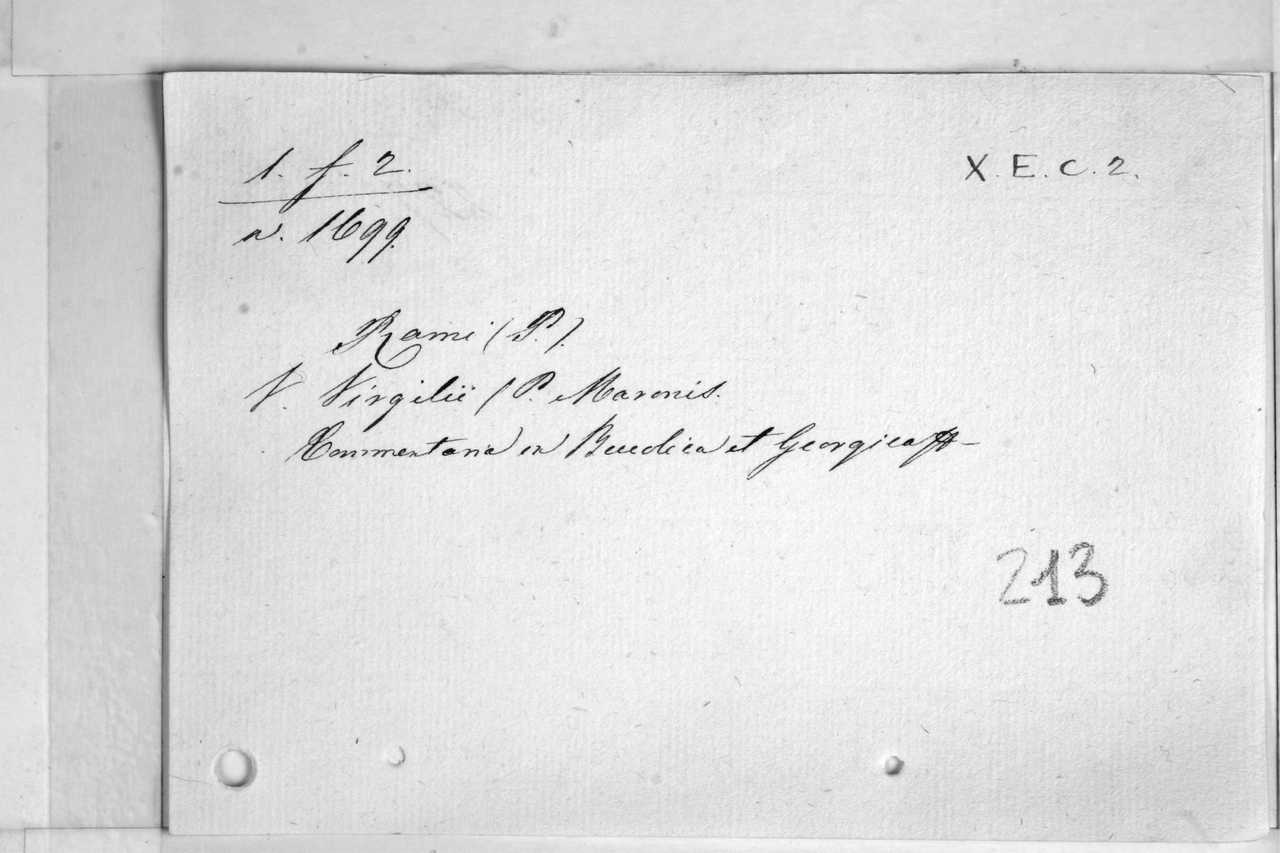 1. f. 2.
X. E. C. 2.
n. 1699.
Rami (P.).
V. Virgilii (P. Maronis.
Commentaria in Bucolica et Georgica
213